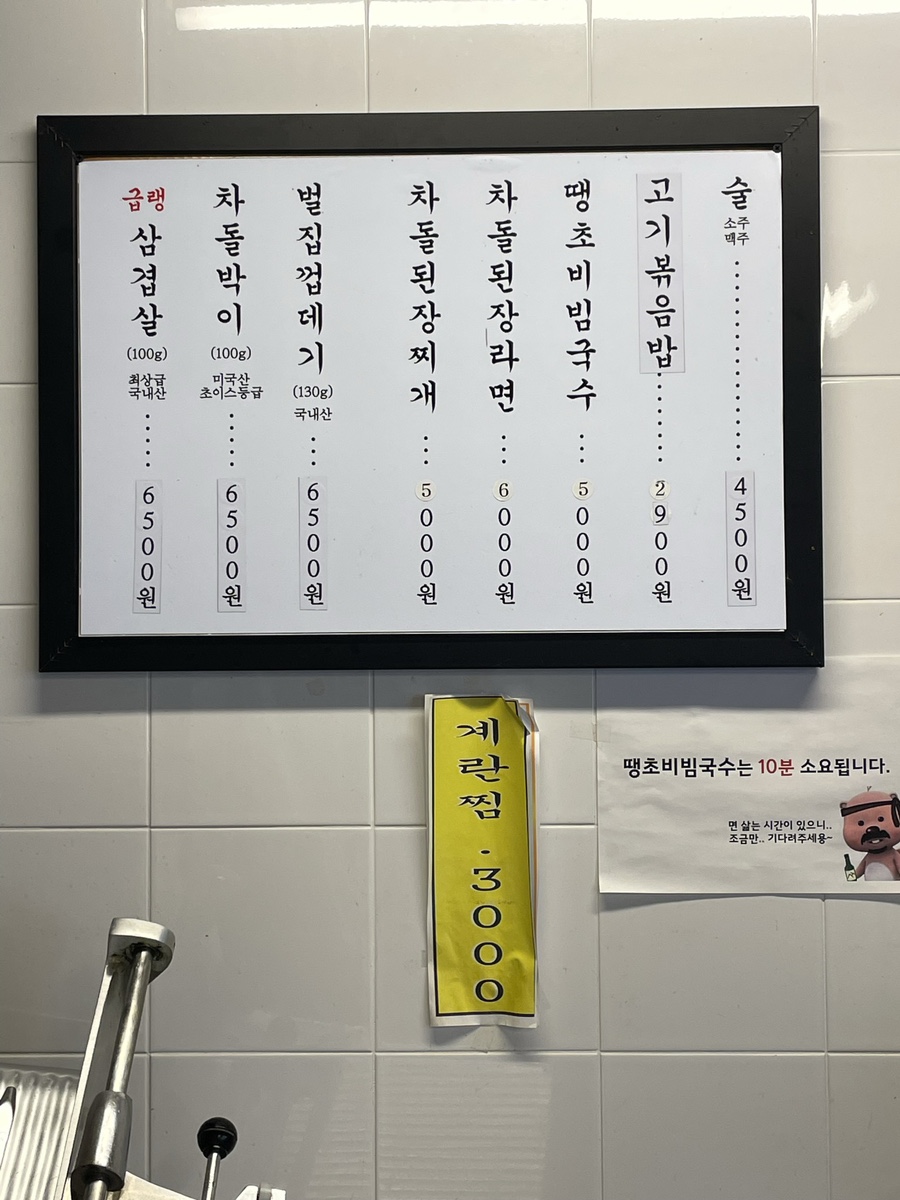 급랭 삼겹살 (100g) 최상급 국내산 ····· 6500원
차돌박이 (100g) 미국산 초이스등급 ····· 6500원
벌집껍데기 (130g) 국내산 ··· 6500원
차돌된장찌개 ··· 5000원
차돌된장라면 ··· 6000원
땡초비빔국수 ··· 5000원
고기볶음밥 ········ 2900원
술 소주 맥주 ················· 4500원
계란찜 · 3000
땡초비빔국수는 10분 소요됩니다.
면 삶는 시간이 있으니..
조금만.. 기다려주세용~